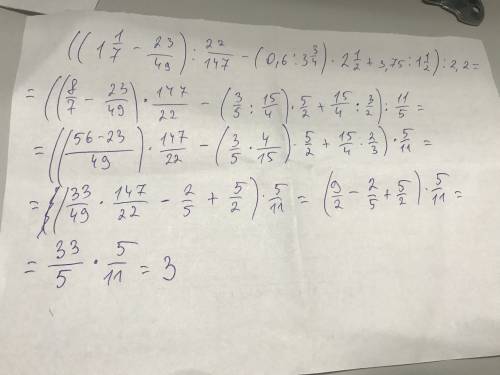 ((1 1/7 - 23/49) : 22/147 - (0,6 : 3 3/4) · 2 1/2 + 3,75 : 1 1/2) : 2,2 =
= ((8/7 - 23/49) · 147/22 - (3/5 : 15/4) · 5/2 + 15/4 : 3/2) : 11/5 =
= (((56-23)/49) · 147/22 - (3/5 · 4/15) · 5/2 + 15/4 · 2/3) · 5/11 =
= (33/49 · 147/22 - 2/5 + 5/2) · 5/11 = (9/2 - 2/5 + 5/2) · 5/11 =
= 33/5 · 5/11 = 3